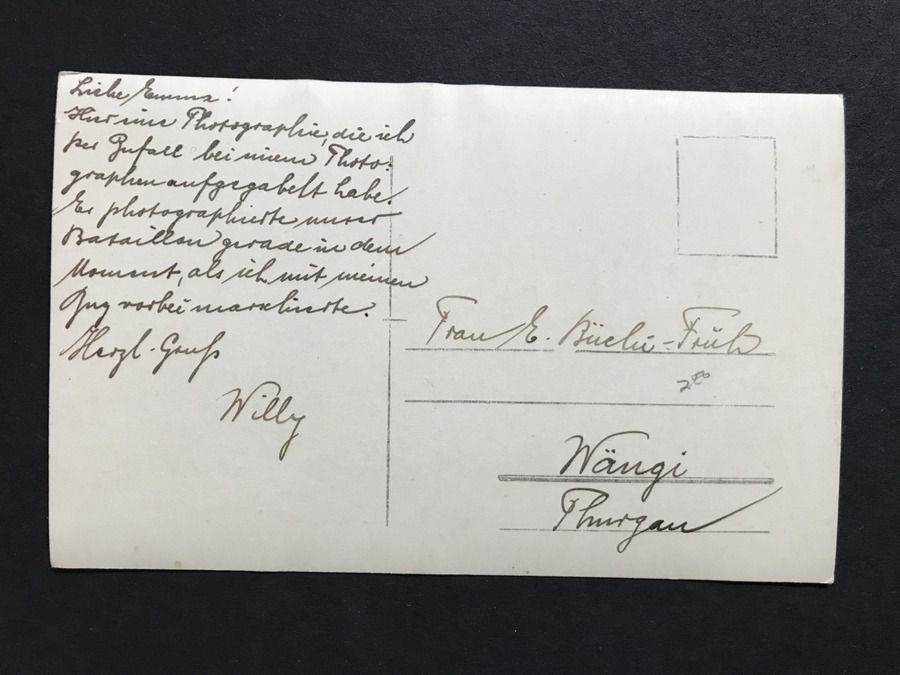 Liebe Emma!
Hier eine Photographie, die ich
per Zufall bei einem Photo-
graphen aufgegabelt habe.
Er photographierte unser
Bataillon gerade in dem
Moment, als ich mit meinem
Zug vorbei marschierte.
Herzl. Gruss
Willy
Frau E. Büchi-Früh
2⁸⁰
Wängi
Thurgau